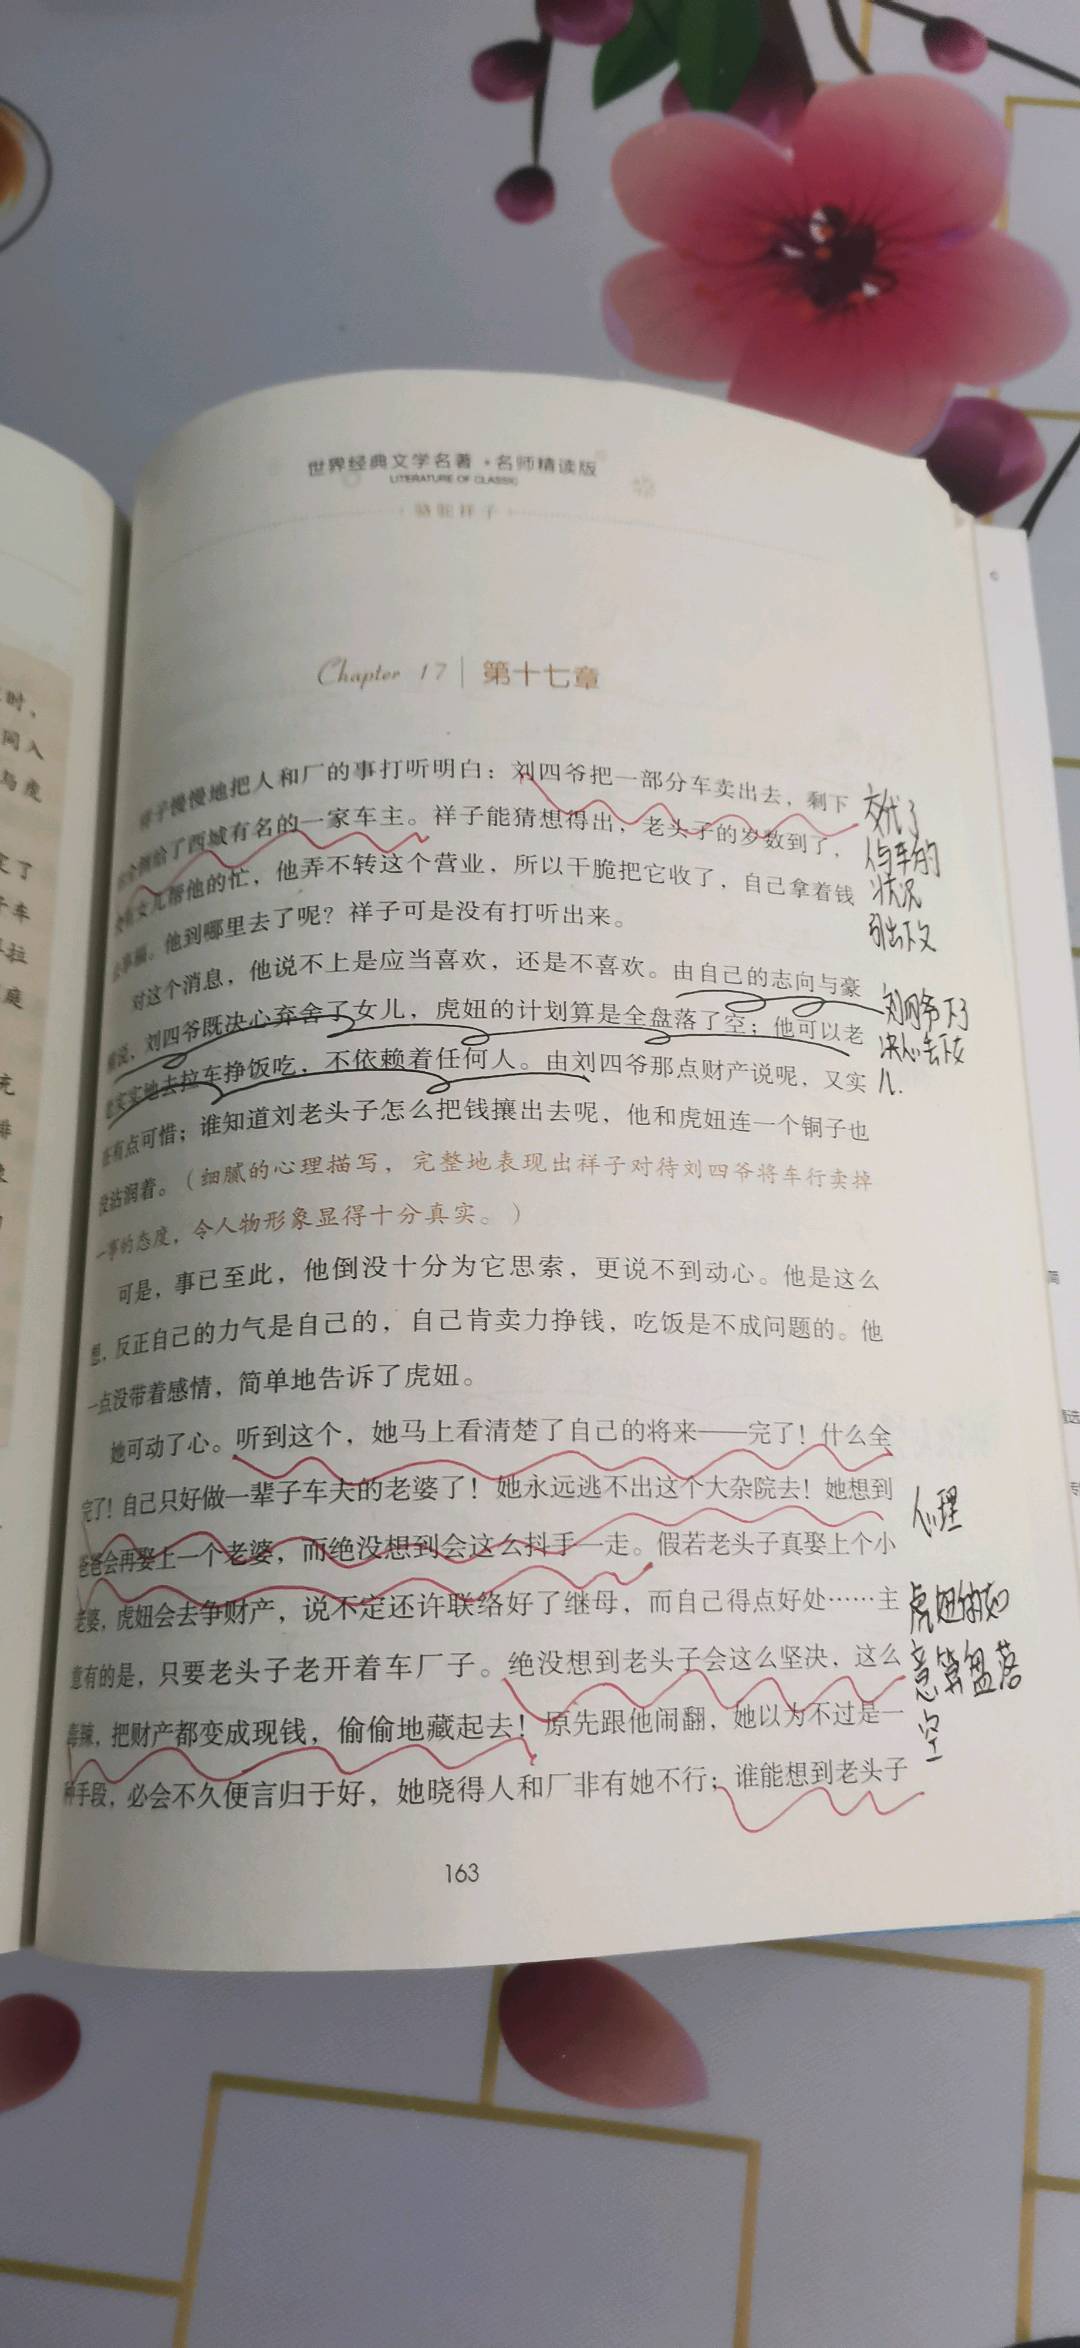 时，
同入
与虎
定了
子车
拉
庭
世界经典文学名著·名师精读版
LITERATURE OF CLASSIC
骆驼祥子
Chapter 17 | 第十七章
祥子慢慢地把人和厂的事打听明白：刘四爷把一部分车卖出去，剩下
的全倒给了西城有名的一家车主。祥子能猜想得出，老头子的岁数到了，
没有女儿帮他的忙，他弄不转这个营业，所以干脆把它收了，自己拿着钱
去享福。他到哪里去了呢？祥子可是没有打听出来。
对这个消息，他说不上是应当喜欢，还是不喜欢。由自己的志向与豪
横说，刘四爷既决心弃舍了女儿，虎妞的计划算是全盘落了空；他可以老
老实实地去拉车挣饭吃，不依赖着任何人。由刘四爷那点财产说呢，又实
在有点可惜；谁知道刘老头子怎么把钱攘出去呢，他和虎妞连一个铜子也
没沾润着。（细腻的心理描写，完整地表现出祥子对待刘四爷将车行卖掉
一事的态度，令人物形象显得十分真实。）
可是，事已至此，他倒没十分为它思索，更说不到动心。他是这么
想，反正自己的力气是自己的，自己肯卖力挣钱，吃饭是不成问题的。他
一点没带着感情，简单地告诉了虎妞。
她可动了心。听到这个，她马上看清楚了自己的将来——完了！什么全
完了！自己只好做一辈子车夫的老婆了！她永远逃不出这个大杂院去！她想到
爸爸会再娶上一个老婆，而绝没想到会这么抖手一走。假若老头子真娶上个小
老婆，虎妞会去争财产，说不定还许联络好了继母，而自己得点好处……主
意有的是，只要老头子老开着车厂子。绝没想到老头子会这么坚决，这么
毒辣，把财产都变成现钱，偷偷地藏起去！原先跟他闹翻，她以为不过是一
种手段，必会不久便言归于好，她晓得人和厂非有她不行；谁能想到老头子
163
交代了
人与车的
状况
引出下文
刘四爷下了
决心丢下女
儿.
心理
虎妞的如
意算盘落
空